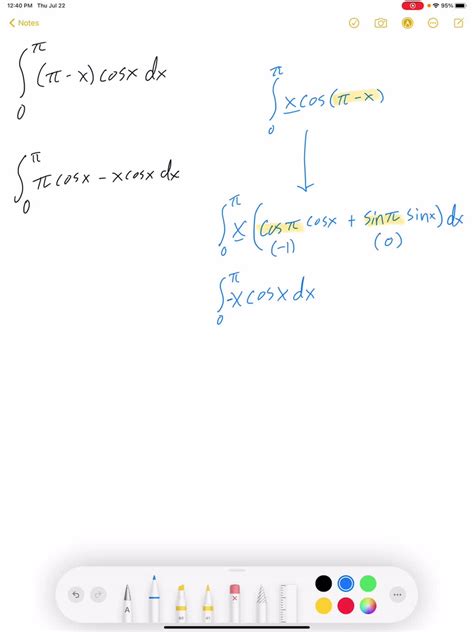 12:40 PM Thu Jul 22
95%
Notes
∫₀^π (π - x) cosx dx
∫₀^π π cosx - x cosx dx
∫₀^π x cos (π - x)
∫₀^π x (cosπ cosx + sinπ sinx) dx
(-1) (0)
∫₀^π -x cosx dx
A